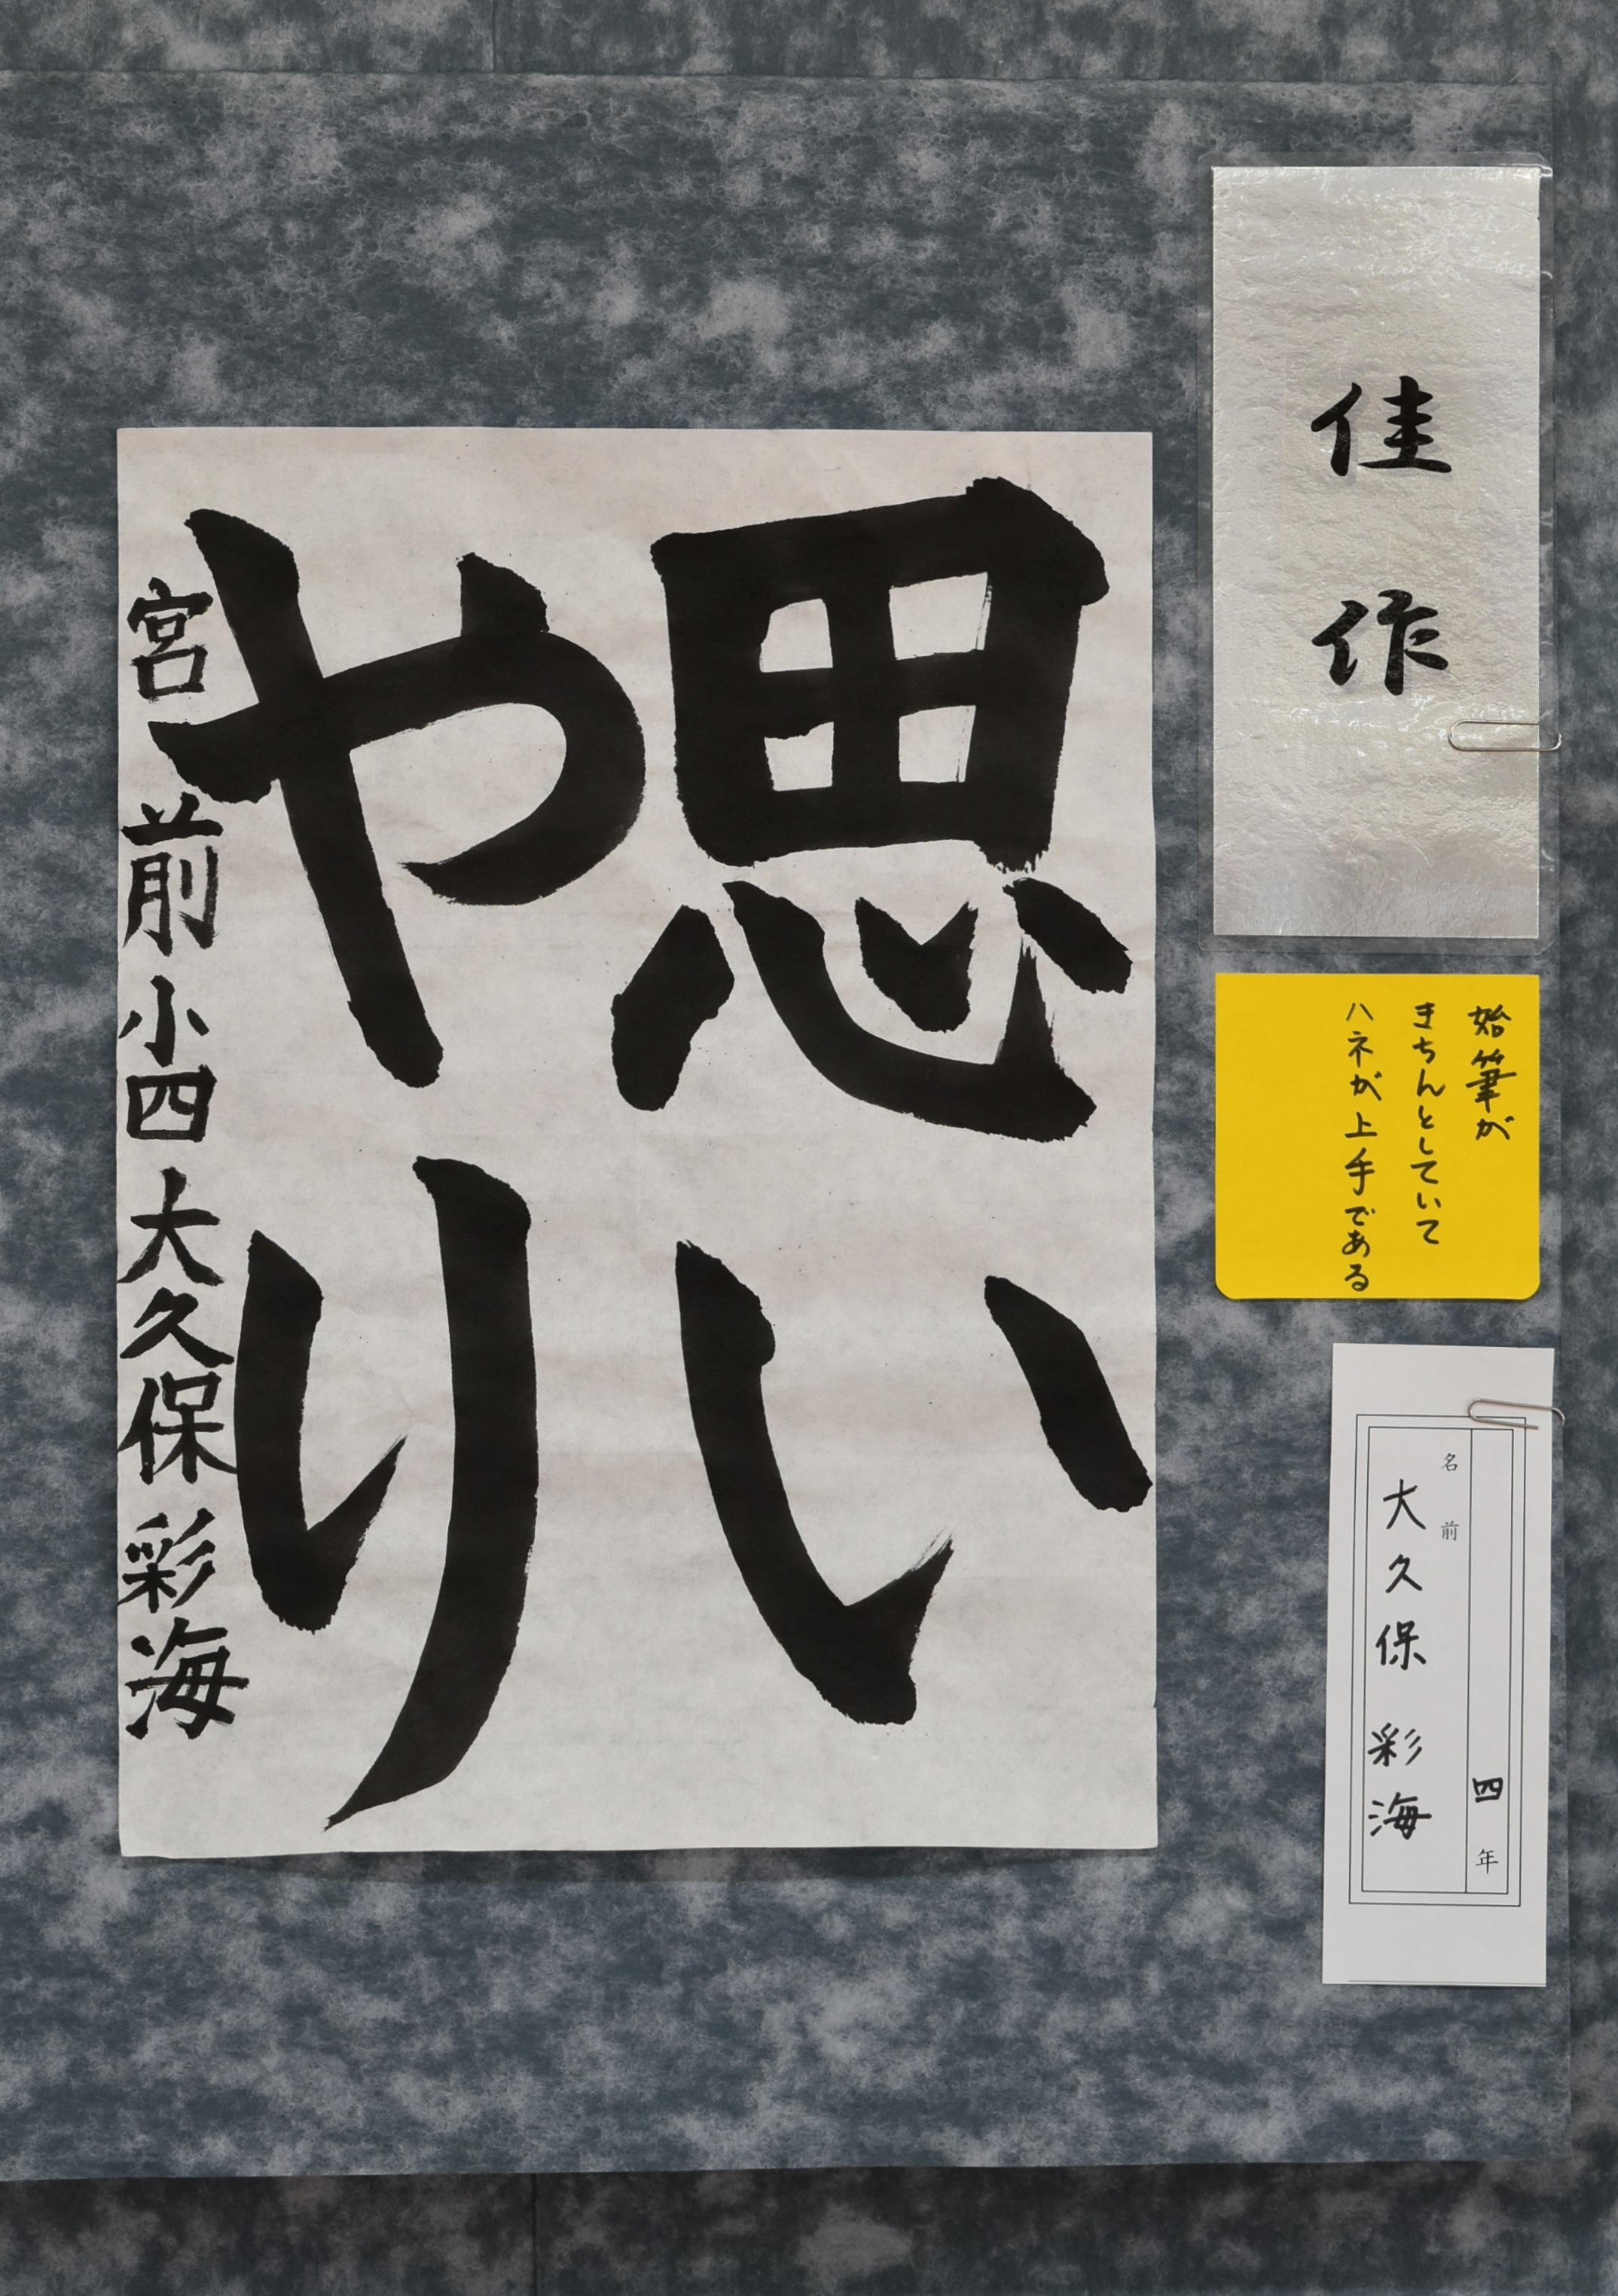 佳作
始筆が
きちんとしていて
ハネが上手である
四年
名前
大久保 彩海
思い
やり
宮前小四 大久保 彩海